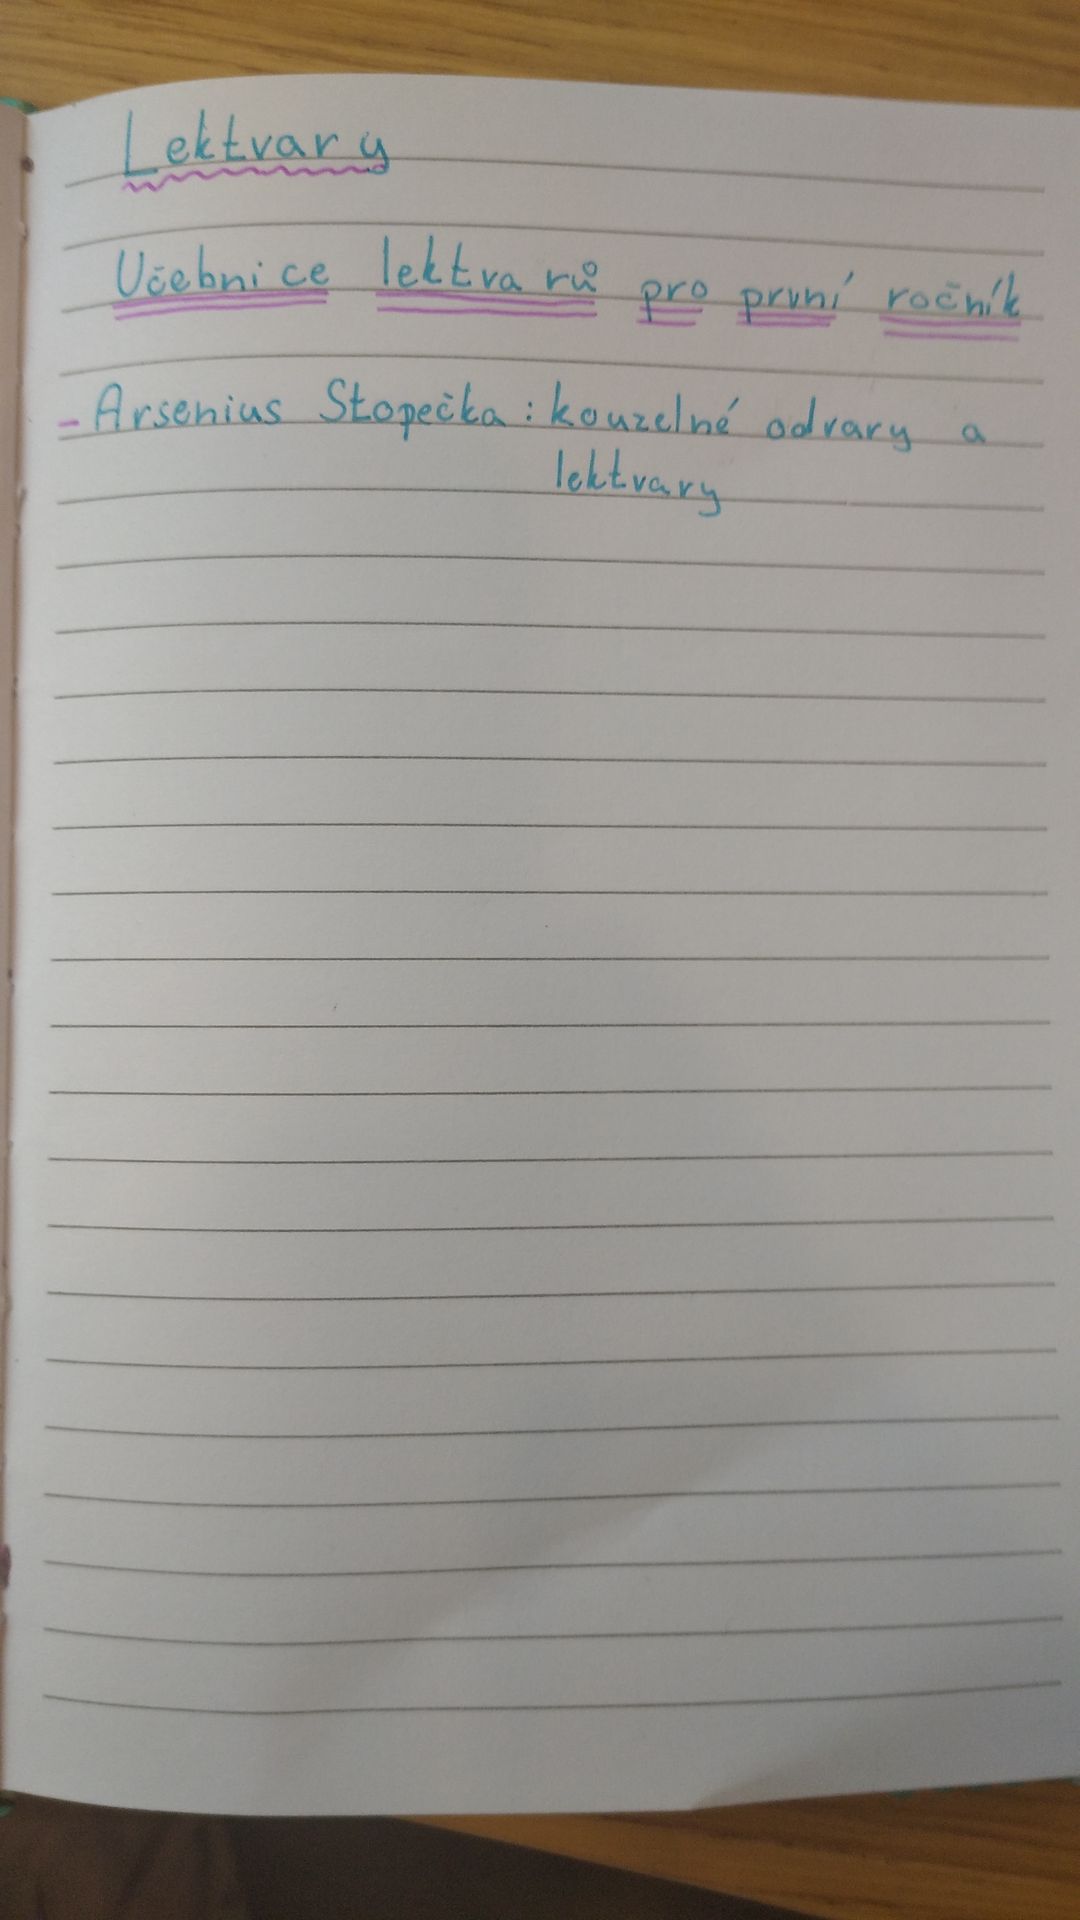 Lektvary
Učebnice lektvarů pro první ročník
- Arsenius Stopečka : kouzelné odvary a
lektvary